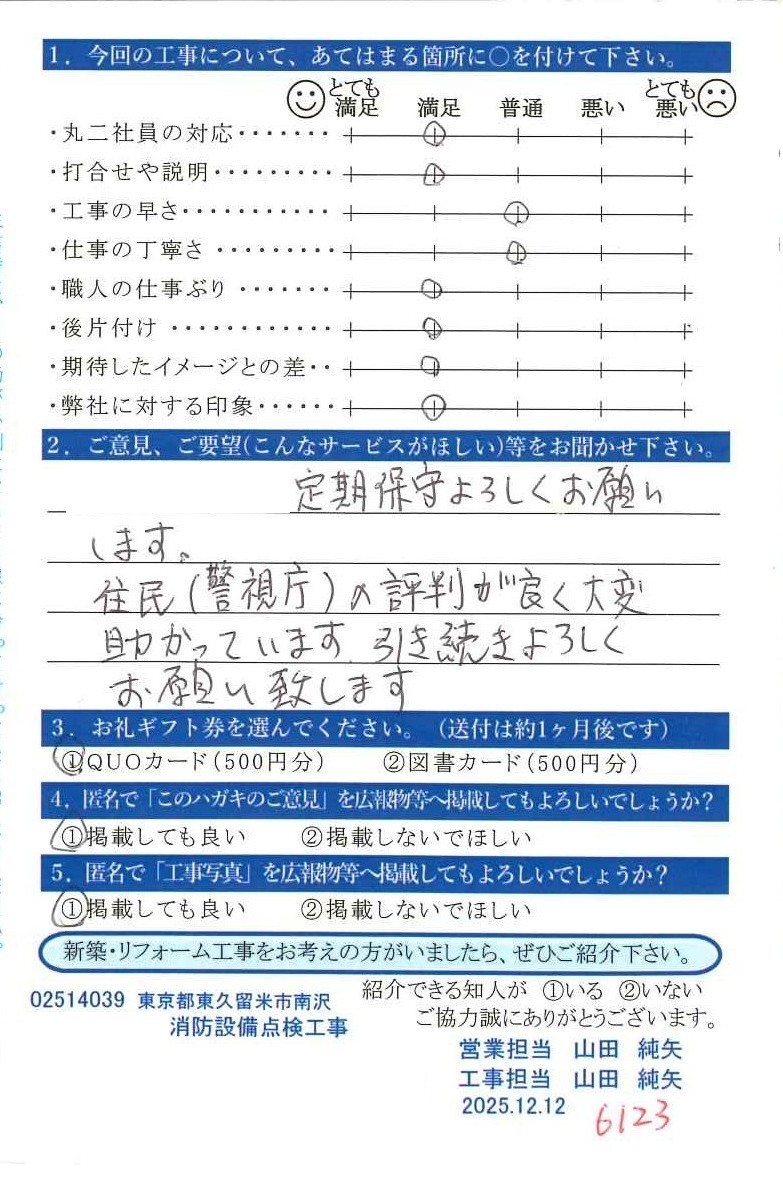 1．今回の工事について、あてはまる箇所に○を付けて下さい。
とても満足 満足 普通 悪い とても悪い
・丸二社員の対応・・・・・・・
・打合せや説明・・・・・・・・・
・工事の早さ・・・・・・・・・・・
・仕事の丁寧さ ・・・・・・・・・
・職人の仕事ぶり ・・・・・・・
・後片付け ・・・・・・・・・・・・
・期待したイメージとの差・・
・弊社に対する印象・・・・・・
2．ご意見、ご要望(こんなサービスがほしい)等をお聞かせ下さい。
定期保守よろしくお願い
します。
住民(警視庁)の評判が良く大変
助かっています 引き続きよろしく
お願い致します
3．お礼ギフト券を選んでください。（送付は約1ヶ月後です）
①QUOカード(500円分) ②図書カード(500円分)
4．匿名で「このハガキのご意見」を広報物等へ掲載してもよろしいでしょうか？
①掲載しても良い ②掲載しないでほしい
5．匿名で「工事写真」を広報物等へ掲載してもよろしいでしょうか？
①掲載しても良い ②掲載しないでほしい
新築・リフォーム工事をお考えの方がいましたら、ぜひご紹介下さい。
紹介できる知人が ①いる ②いない
ご協力誠にありがとうございます。
02514039 東京都東久留米市南沢
消防設備点検工事
営業担当 山田 純矢
工事担当 山田 純矢
2025.12.12
6123